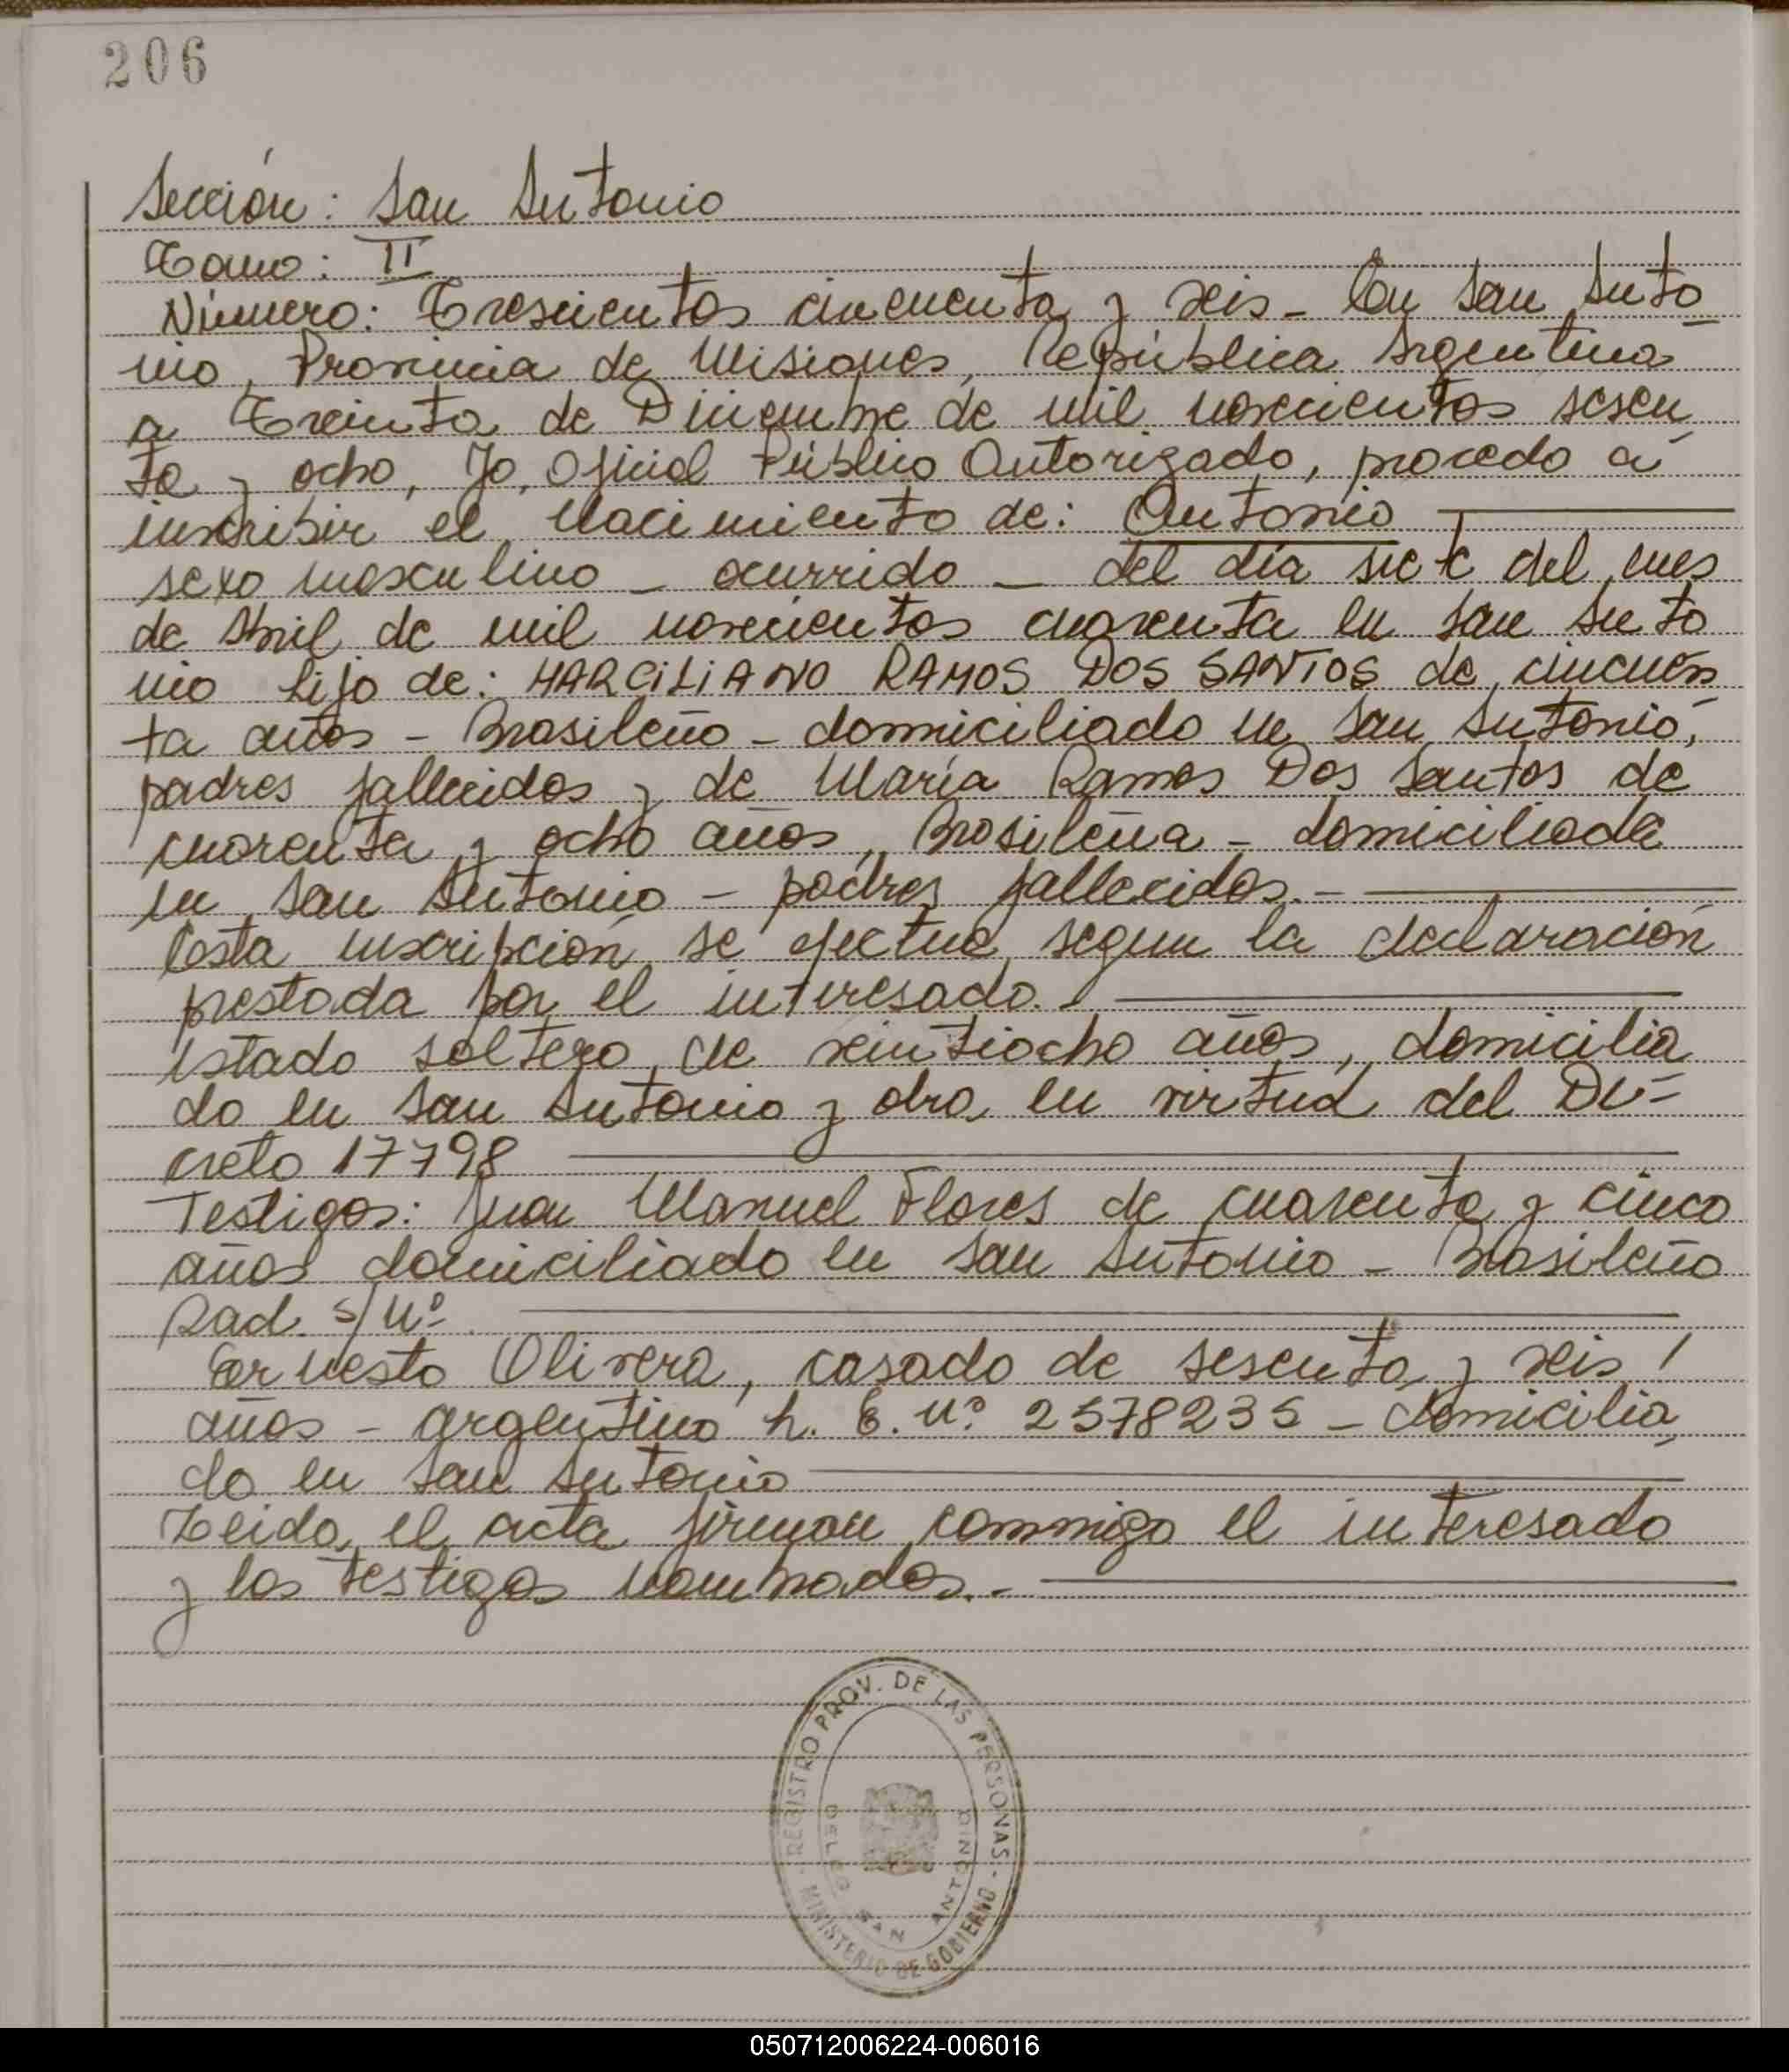 206
Sección: San Antonio
Tomo: II
Número: Trescientos cincuenta y seis - En San Anto
nio, Provincia de Misiones, República Argentina
a Treinta de Diciembre de mil novecientos sesen
ta y ocho, Yo, Oficial Público Autorizado, procedo a
inscribir el Nacimiento de: Antonio
sexo masculino - ocurrido - del día siete del mes
de Abril de mil novecientos cuarenta en San Anto
nio hijo de: MARCILIANO RAMOS DOS SANTOS de cincuen
ta años - Brasileño - domiciliado en San Antonio,
padres fallecidos y de María Ramos Dos Santos de
cuarenta y ocho años, Brasileña - domiciliada
en San Antonio - padres fallecidos.-
Esta inscripción se efectua segun la declaración
prestada por el interesado.
estado soltero, de veintiocho años, domicilia
do en San Antonio y obra en virtud del De-
creto 17798
Testigos: Juan Manuel Flores de cuarenta y cinco
años domiciliado en San Antonio - Brasileño
Rad. s/Nº
Ernesto Olivera, casado de sesenta y seis
años - argentino L. E. Nº 2578235 - domicilia
do en San Antonio
Leida el acta firman conmigo el interesado
y los testigos nombrados.-
REGISTRO PROV. DE LAS PERSONAS
DELEG SAN ANTONIO
MINISTERIO DE GOBIERNO
050712006224-006016